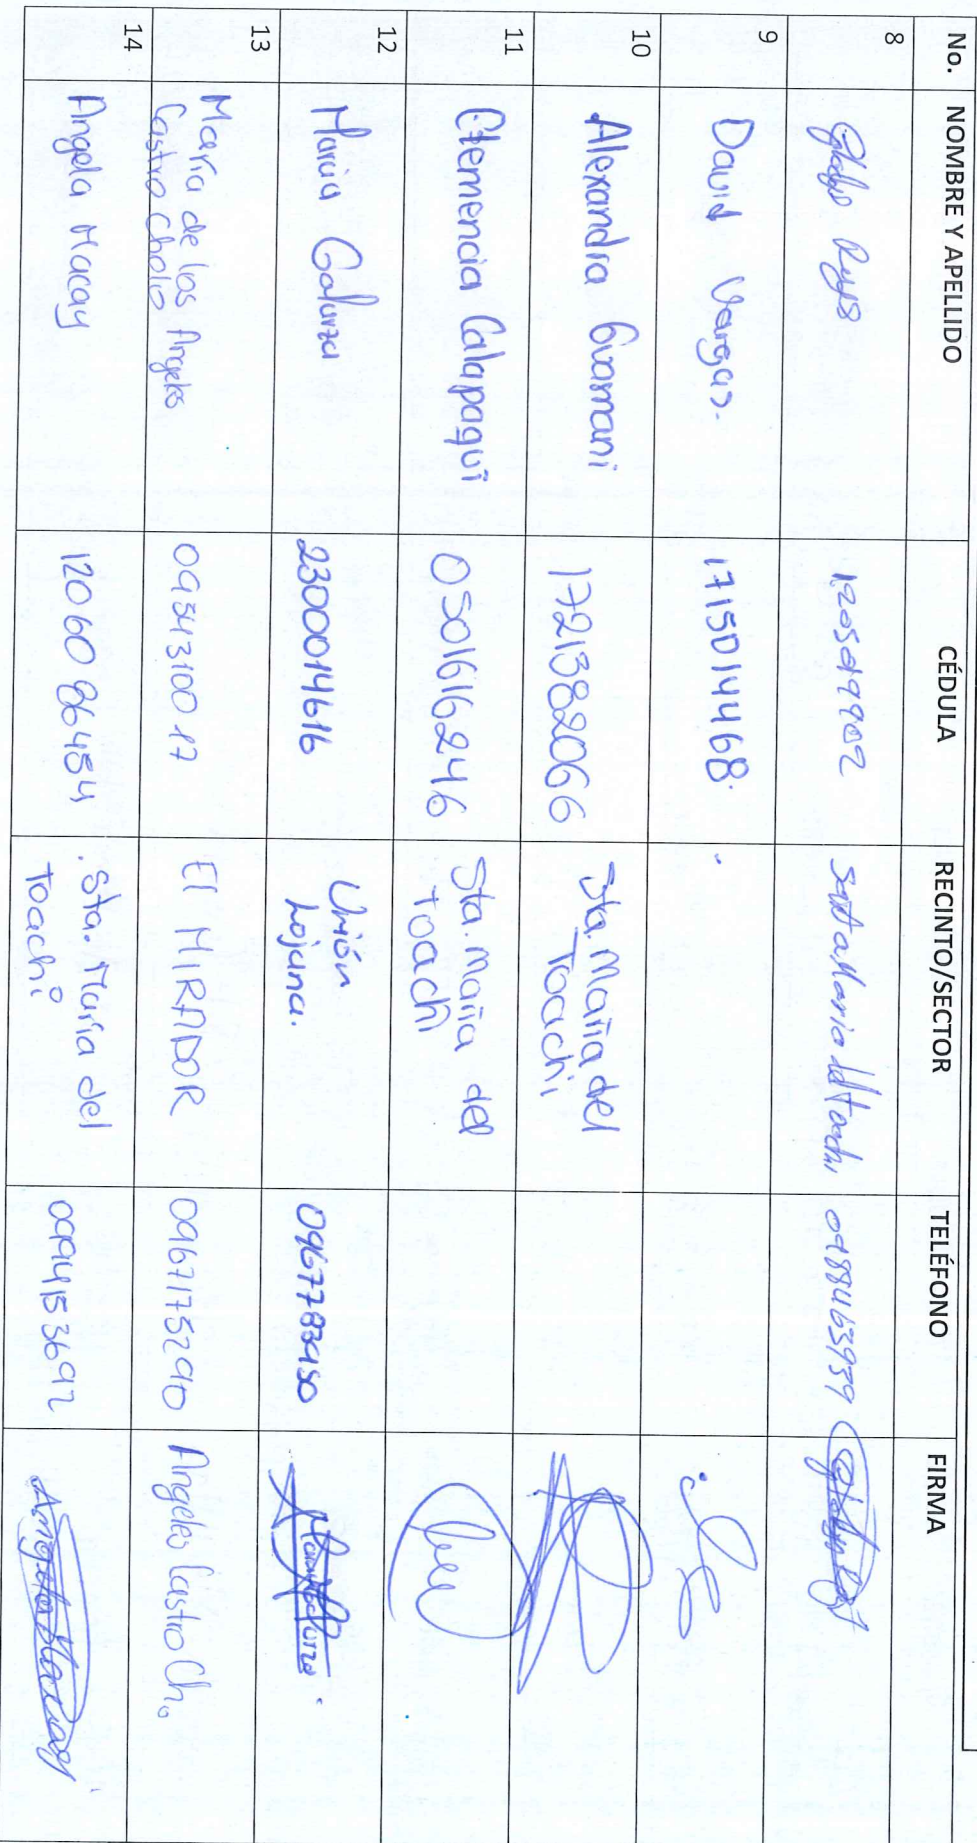 No. NOMBRE Y APELLIDO CÉDULA RECINTO/SECTOR TELÉFONO FIRMA
8 Gladys Reyes 1205019902 Santa Maria del Toachi 0988463939
9 David Vargas. 1715014468.
10 Alexandra Guamani 1721382066 Sta. Maria del
Toachi
11 Clemencia Calapaqui 0501616246 Sta. Maria del
Toachi
12 Marcia Galarza 2300014616 Unión
Lojana. 0967783450
13 María de los Angeles
Castro Cholio 0954310017 El MIRADOR 0967175290 Angeles Castro Ch.
14 Angela Macay 1206086454 Sta. Maria del
Toachi 0994153692